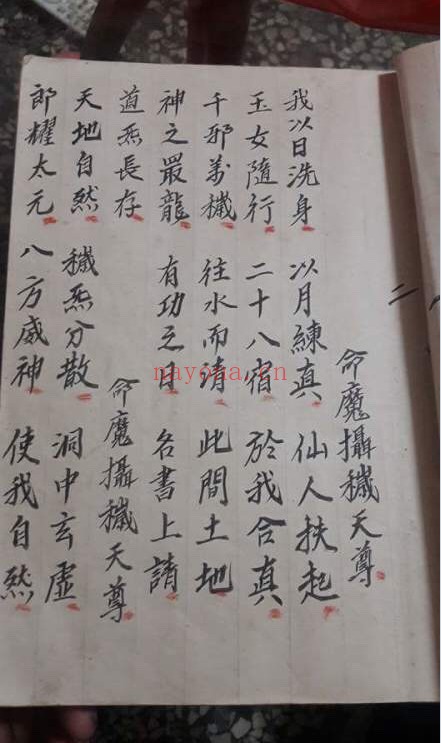 二
命魔攝穢天尊
我以日洗身 以月練真 仙人扶起
玉女隨行 二十八宿 於我合真
千邪萬穢 往水而清 此間土地
神之最龍 有功之日 名書上請
道炁長存 命魔攝穢天尊
天地自然 穢炁分散 洞中玄虛
郎耀太元 八方威神 使我自然
nayona.cn